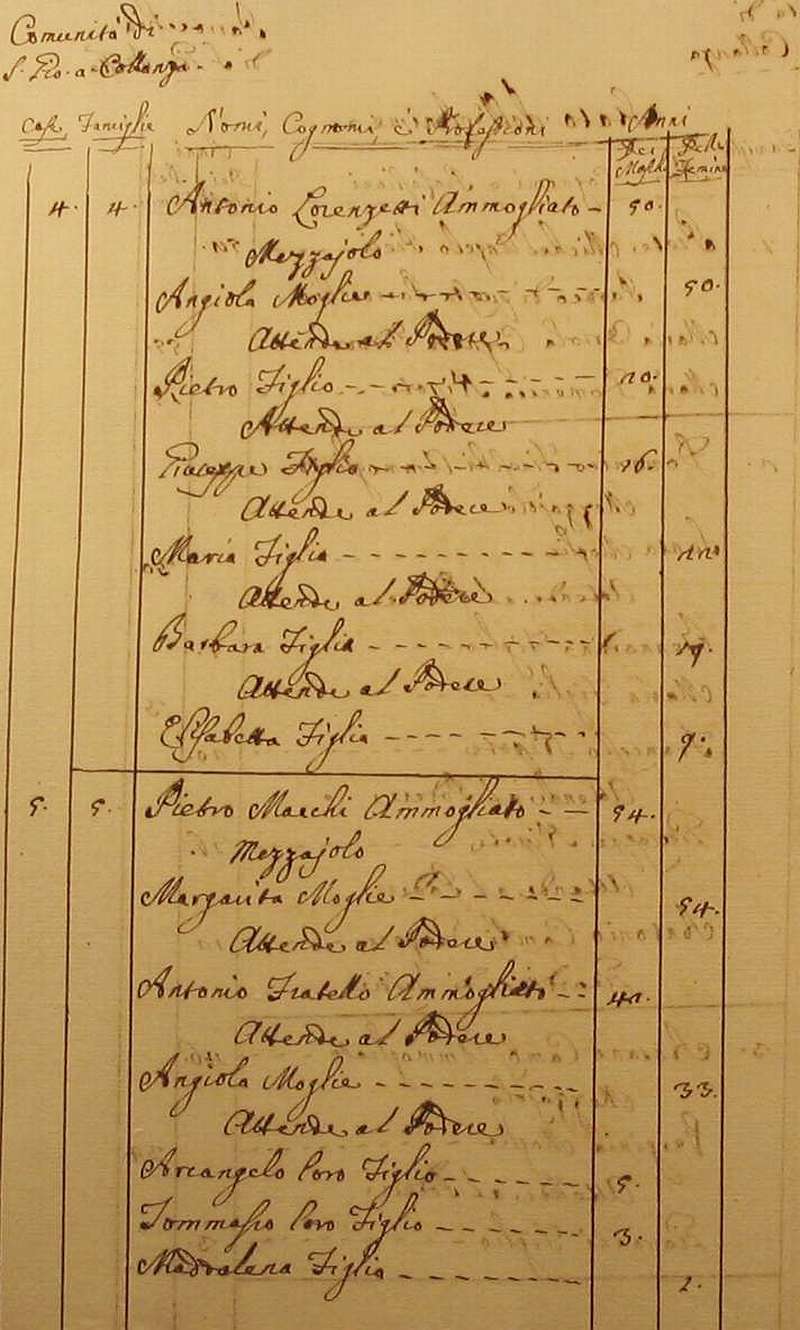 Comunità di
S. Pio. a. Collanza
Case, Famiglie Nomi, Cognomi, è Professioni Anni
Dei Maschi Delle Femine
4. 4. Antonio Lorenzetti Ammogliato - 50.
Mezzajolo
Angiola Moglie - - - - - - 50.
Attende al Podere
Pietro Figlio - - - - - - 20.
Attende al Podere
Giuseppe Figlio - - - - - - 16.
Attende al Podere
Maria Figlia - - - - - - - - - - 22
Attende al Podere
Barbara Figlia - - - - - - - - - 19.
Attende al Podere
Elisabetta Figlia - - - - - - - - 9.
5. 5. Pietro Marchi Ammogliato - - 54.
Mezzajolo
Margarita Moglie - - - - - - - 54.
Attende al Podere
Antonio Fratello Ammogliato - - 42.
Attende al Podere
Angiola Moglie - - - - - - - - - 33.
Attende al Podere
Arcangelo loro Figlio - - - - - - 5.
Tommaso loro Figlio - - - - - - 3.
Madalena Figlia - - - - - - - 1.